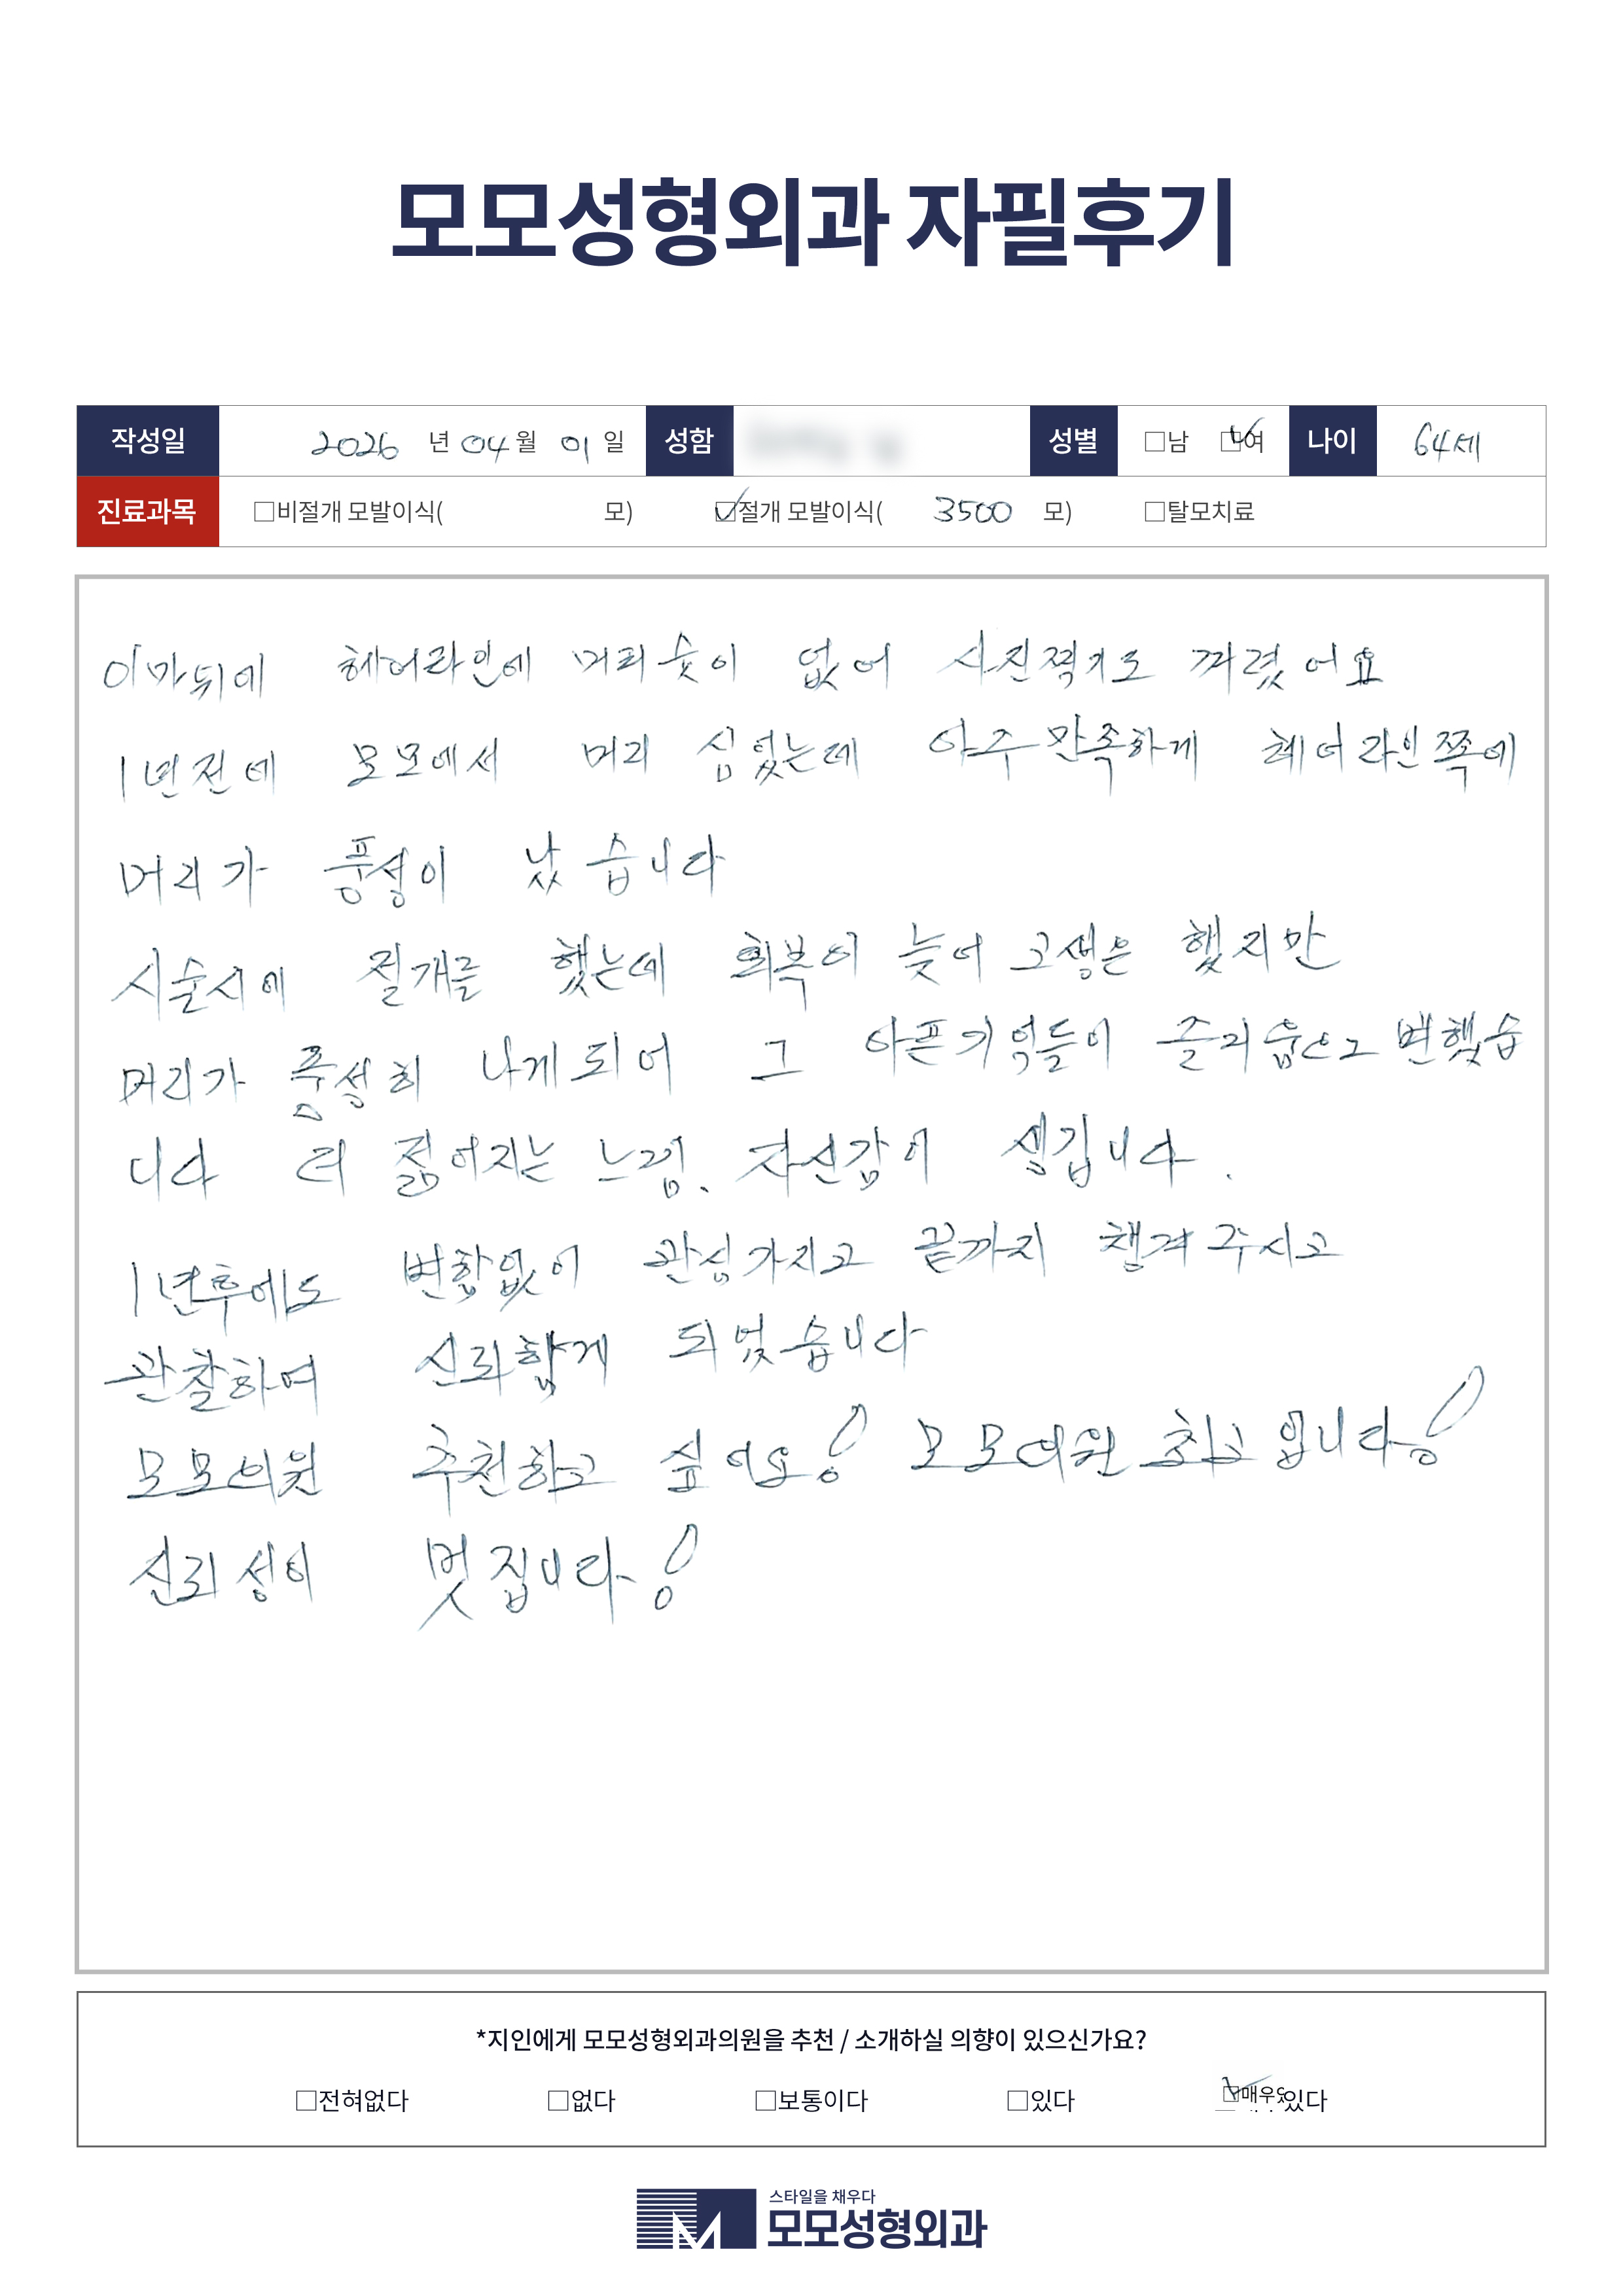 모모성형외과 자필후기
작성일 2026 년 04 월 01 일 성함 성별 □남 ☑여 나이 64세
진료과목 □비절개 모발이식( 모) ☑절개 모발이식( 3500 모) □탈모치료
이마뒤에 헤어라인에 머리숯이 없어 사진찍기도 꺼렸어요
1년전에 모모에서 머리 심었는데 아주 만족하게 헤어라인쪽에
머리가 풍성이 났습니다
시술시에 절개를 했는데 회복이 늦어 고생은 했지만
머리가 풍성히 나게되어 그 아픈기억들이 즐거움으로 변했습
니다 더 젊어지는 느낌. 자신감이 생깁니다.
1년후에도 변함없이 관심가지고 끝까지 챙겨주시고
관찰하여 신뢰할게 되었습니다
모모의원 추천하고 싶어요! 모모의원 최고입니다!
신뢰성이 멋집니다!
*지인에게 모모성형외과의원을 추천 / 소개하실 의향이 있으신가요?
□전혀없다 □없다 □보통이다 □있다 ☑매우있다
스타일을 채우다
모모성형외과